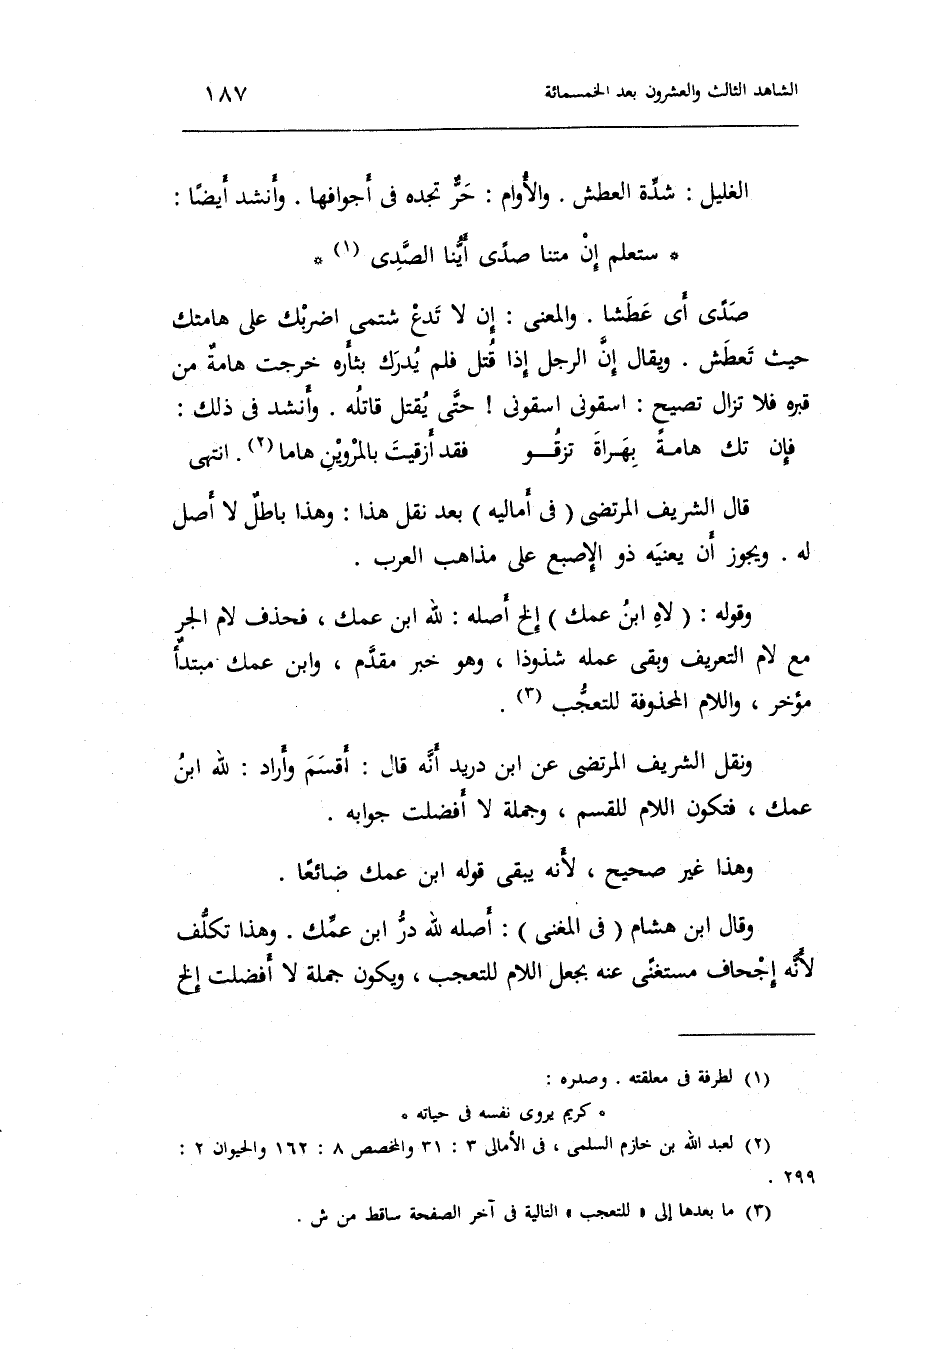 الشاهد الثالث والعشرون بعد الخمسمائة ١٨٧
الغليل : شدَّة العطش . والأُوام : حَرٌّ تجده فى أَجوافها . وأَنشد أَيضًا :
* ستعلم إِنْ متنا صدًى أَيُّنا الصَّدِى (١) *
صَدًى أَى عَطَشا . والمعنى : إِن لا تَدعْ شتمى اضربْك على هامتك
حيث تَعطَش . ويقال إِنَّ الرجل إِذا قُتل فلم يُدرَك بثأْره خرجت هامةٌ من
قبره فلا تزال تصيح : اسقونى اسقونى ! حتَّى يُقتل قاتلُه . وأَنشد فى ذلك :
فإِن تك هامةً بِهَراةَ تزقُو فقد أَزقيتَ بالمرْوَيْنِ هاما (٢) . انتهى
قال الشريف المرتضى ( فى أَماليه ) بعد نقل هذا : وهذا باطلٌ لا أَصل
له . ويجوز أَن يعنيَه ذو الإِصبع على مذاهب العرب .
وقوله : ( لاهِ ابنُ عمك ) إِلخ أَصله : لله ابن عمك ، فحذف لام الجر
مع لام التعريف وبقى عمله شذوذا ، وهو خبر مقدَّم ، وابن عمك مبتدأٌ
مؤخر ، واللام المحذوفة للتعجُّب (٣) .
ونقل الشريف المرتضى عن ابن دريد أَنَّه قال : أَقسَمَ وأَراد : لله ابنُ
عمك ، فتكون اللام للقسم ، وجملة لا أَفضلت جوابه .
وهذا غير صحيح ، لأَنه يبقى قوله ابن عمك ضائعًا .
وقال ابن هشام ( فى المغنى ) : أَصله لله درُّ ابن عمِّك . وهذا تكلُّف
لأَنَّه إِجْحاف مستغنًى عنه بجعل اللام للتعجب ، ويكون جملة لا أَفضلت إِلخ
(١) لطرفة فى معلقته . وصدره :
* كريم يروى نفسه فى حياته *
(٢) لعبد الله بن خازم السلمى ، فى الأمالى ٣ : ٣١ والمخصص ٨ : ١٦٢ والحيوان ٢ :
٢٩٩ .
(٣) ما بعدها إلى « للتعجب » التالية فى آخر الصفحة ساقط من ش .